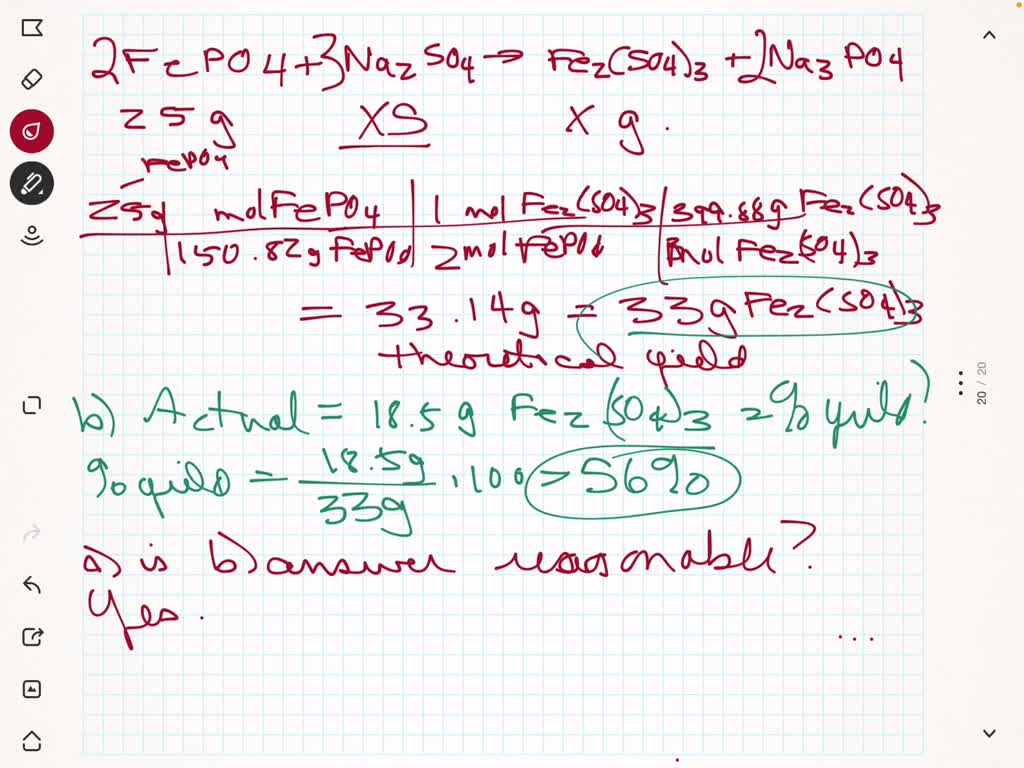 2FePO4+3Na2SO4→Fe2(SO4)3+2Na3PO4
25g XS x g.
FePO4
25g molFePO4 | 1 mol Fe2(SO4)3 | 399.88g Fe2(SO4)3
150.82g FePO4 | 2mol FePO4 | mol Fe2(SO4)3
= 33.14g = 33g Fe2(SO4)3
theoretical yield
b) Actual = 18.5g Fe2(SO4)3 = % yield?
% yield = 18.5g/33g . 100 = 56%
a) is b) answer reasonable?
Yes.
...
20 / 20